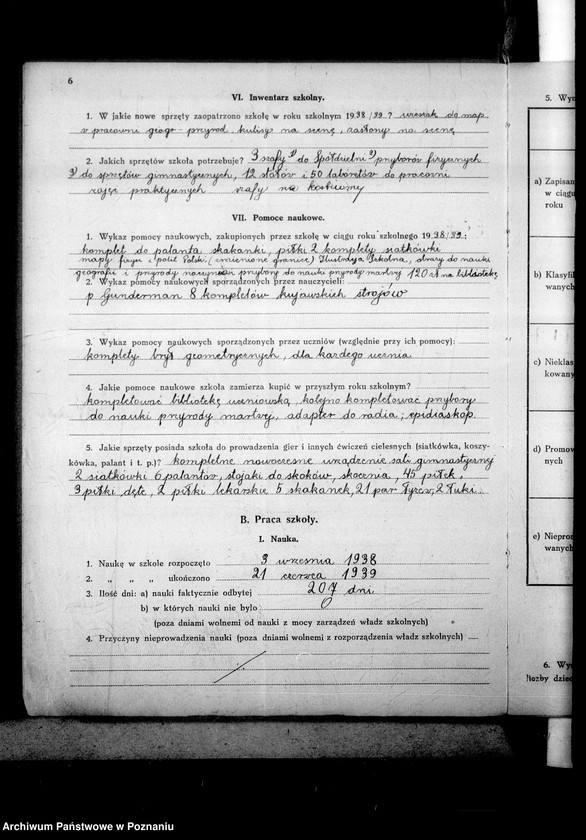 6
VI. Inwentarz szkolny.
1. W jakie nowe sprzęty zaopatrzono szkołę w roku szkolnym 1938/39? wieszak do map
w pracowni geogr-przyrod. kulisy na scenę, zasłony na scenę
2. Jakich sprzętów szkoła potrzebuje? 3 szafy 1) do Spółdzielni 2) przyborów fizycznych
3) do sprzętów gimnastycznych, 12 stołów i 50 taboretów do pracowni
zajęć praktycznych szafy na kostiumy
VII. Pomoce naukowe.
1. Wykaz pomocy naukowych, zakupionych przez szkołę w ciągu roku szkolnego 1938/39:
komplet do palanta skakanki, piłki 2 komplety siatkówki
mapy fizyn i polit Polski, (zmienione granice) Ilustracja Szkolna, obrazy do nauki
geografii i przyrody przybory do nauki przyrody martwej 120 zł na bibliotekę
2. Wykaz pomocy naukowych sporządzonych przez nauczycieli:
p Gunderman 8 kompletów kujawskich strojów
3. Wykaz pomocy naukowych sporządzonych przez uczniów (względnie przy ich pomocy):
komplety brył geometrycznych, dla każdego ucznia
4. Jakie pomoce naukowe szkoła zamierza kupić w przyszłym roku szkolnym?
kompletować bibliotekę uczniowską, kolejno kompletować przybory
do nauki przyrody martwej, adapter do radia; epidiaskop.
5. Jakie sprzęty posiada szkoła do prowadzenia gier i innych ćwiczeń cielesnych (siatkówka, koszy-
kówka, palant i t. p.)? kompletne nowoczesne urządzenie sali gimnastycznej
2 siatkówki 6 palantów, stojaki do skoków, skocznia, 45 piłek,
3 piłki dęte, 2 piłki lekarskie 5 skakanek, 21 par łyżew, 2 łuki.
B. Praca szkoły.
I. Nauka.
1. Naukę w szkole rozpoczęto 3 września 1938
2. " " " ukończono 21 czerwca 1939
3. Ilość dni: a) nauki faktycznie odbytej 207 dni
b) w których nauki nie było 0
(poza dniami wolnemi od nauki z mocy zarządzeń władz szkolnych)
4. Przyczyny nieprowadzenia nauki (poza dniami wolnemi z rozporządzenia władz szkolnych)
5. Wy
a) Zapisan
w ciągu
roku
b) Klasyfi
wanych
c) Nieklas
kowany
d) Promow
nych
e) Niepron
wanych
6. Wy
liczby dzie
Archiwum Państwowe w Poznaniu